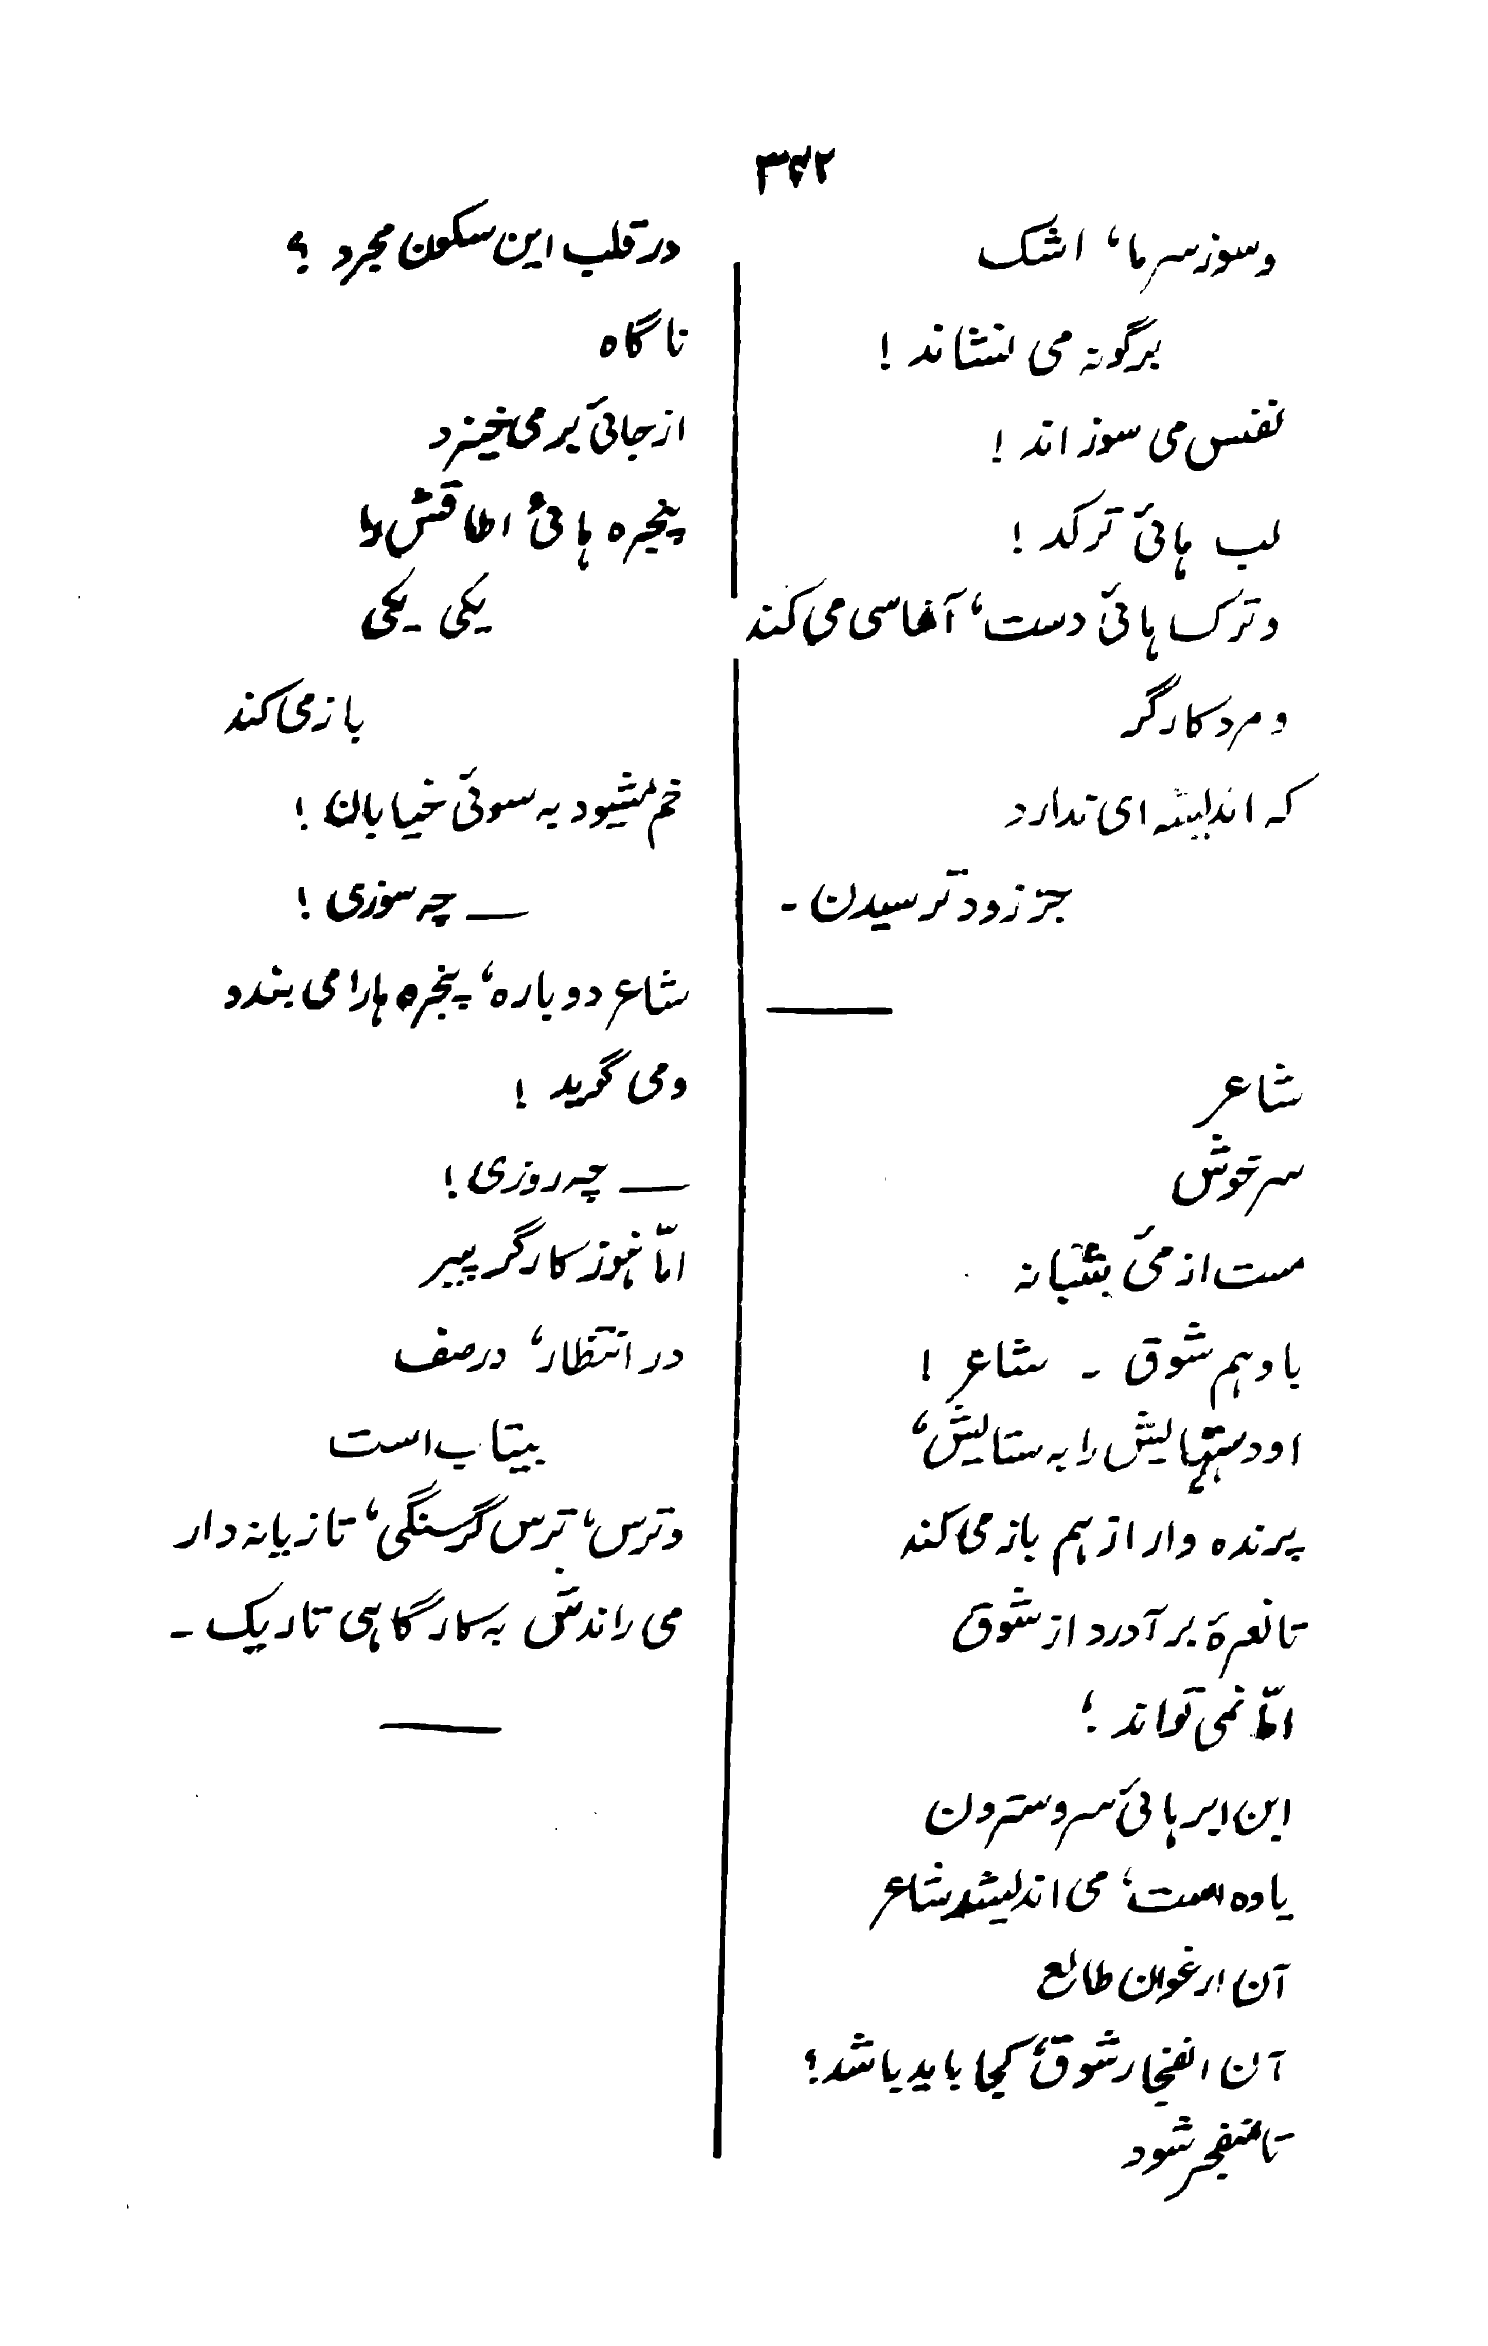 ۳۴۲
و سوز سرما، اشک
برگونه می نشاند !
نفس می سوزاند !
لب هائ ترکد !
و ترک هائ دست، آغاسی می کند
و مرد کارگر
که اندیشه ای ندارد
جز زود تر سیدن -
شاعر
سرخوش
مست از مئ شبانه
با وهم شوق - شاعر !
او دستهایش را به ستایش،
پرنده وار از هم باز می کند
تا نعرهٔ بر آورد از شوق
امّا نمی تواند ؛
این ابر هائ سرو سترون
یاوه است، می اندیشد شاعر
آن ارغوان طالع
آن انفجار شوق کجا باید باشد ؟
تا منفجر شود
در قلب این سکون مجرد ؟
ناگاه
از جائ بر می خیزد
پنجره هائ اطاقش را
یکی - یکی
باز می کند
خم میشود به سوئ خیابان !
— چه سوزی !
شاعر دوباره، پنجره ها را می بندد
و می گوید !
— چه روزی !
امّا هنوز کارگر پیر
در انتظار، در صف
بیتاب است
و ترس، ترس گرسنگی، تازیانه دار
می راندش به کارگاهی تاریک -